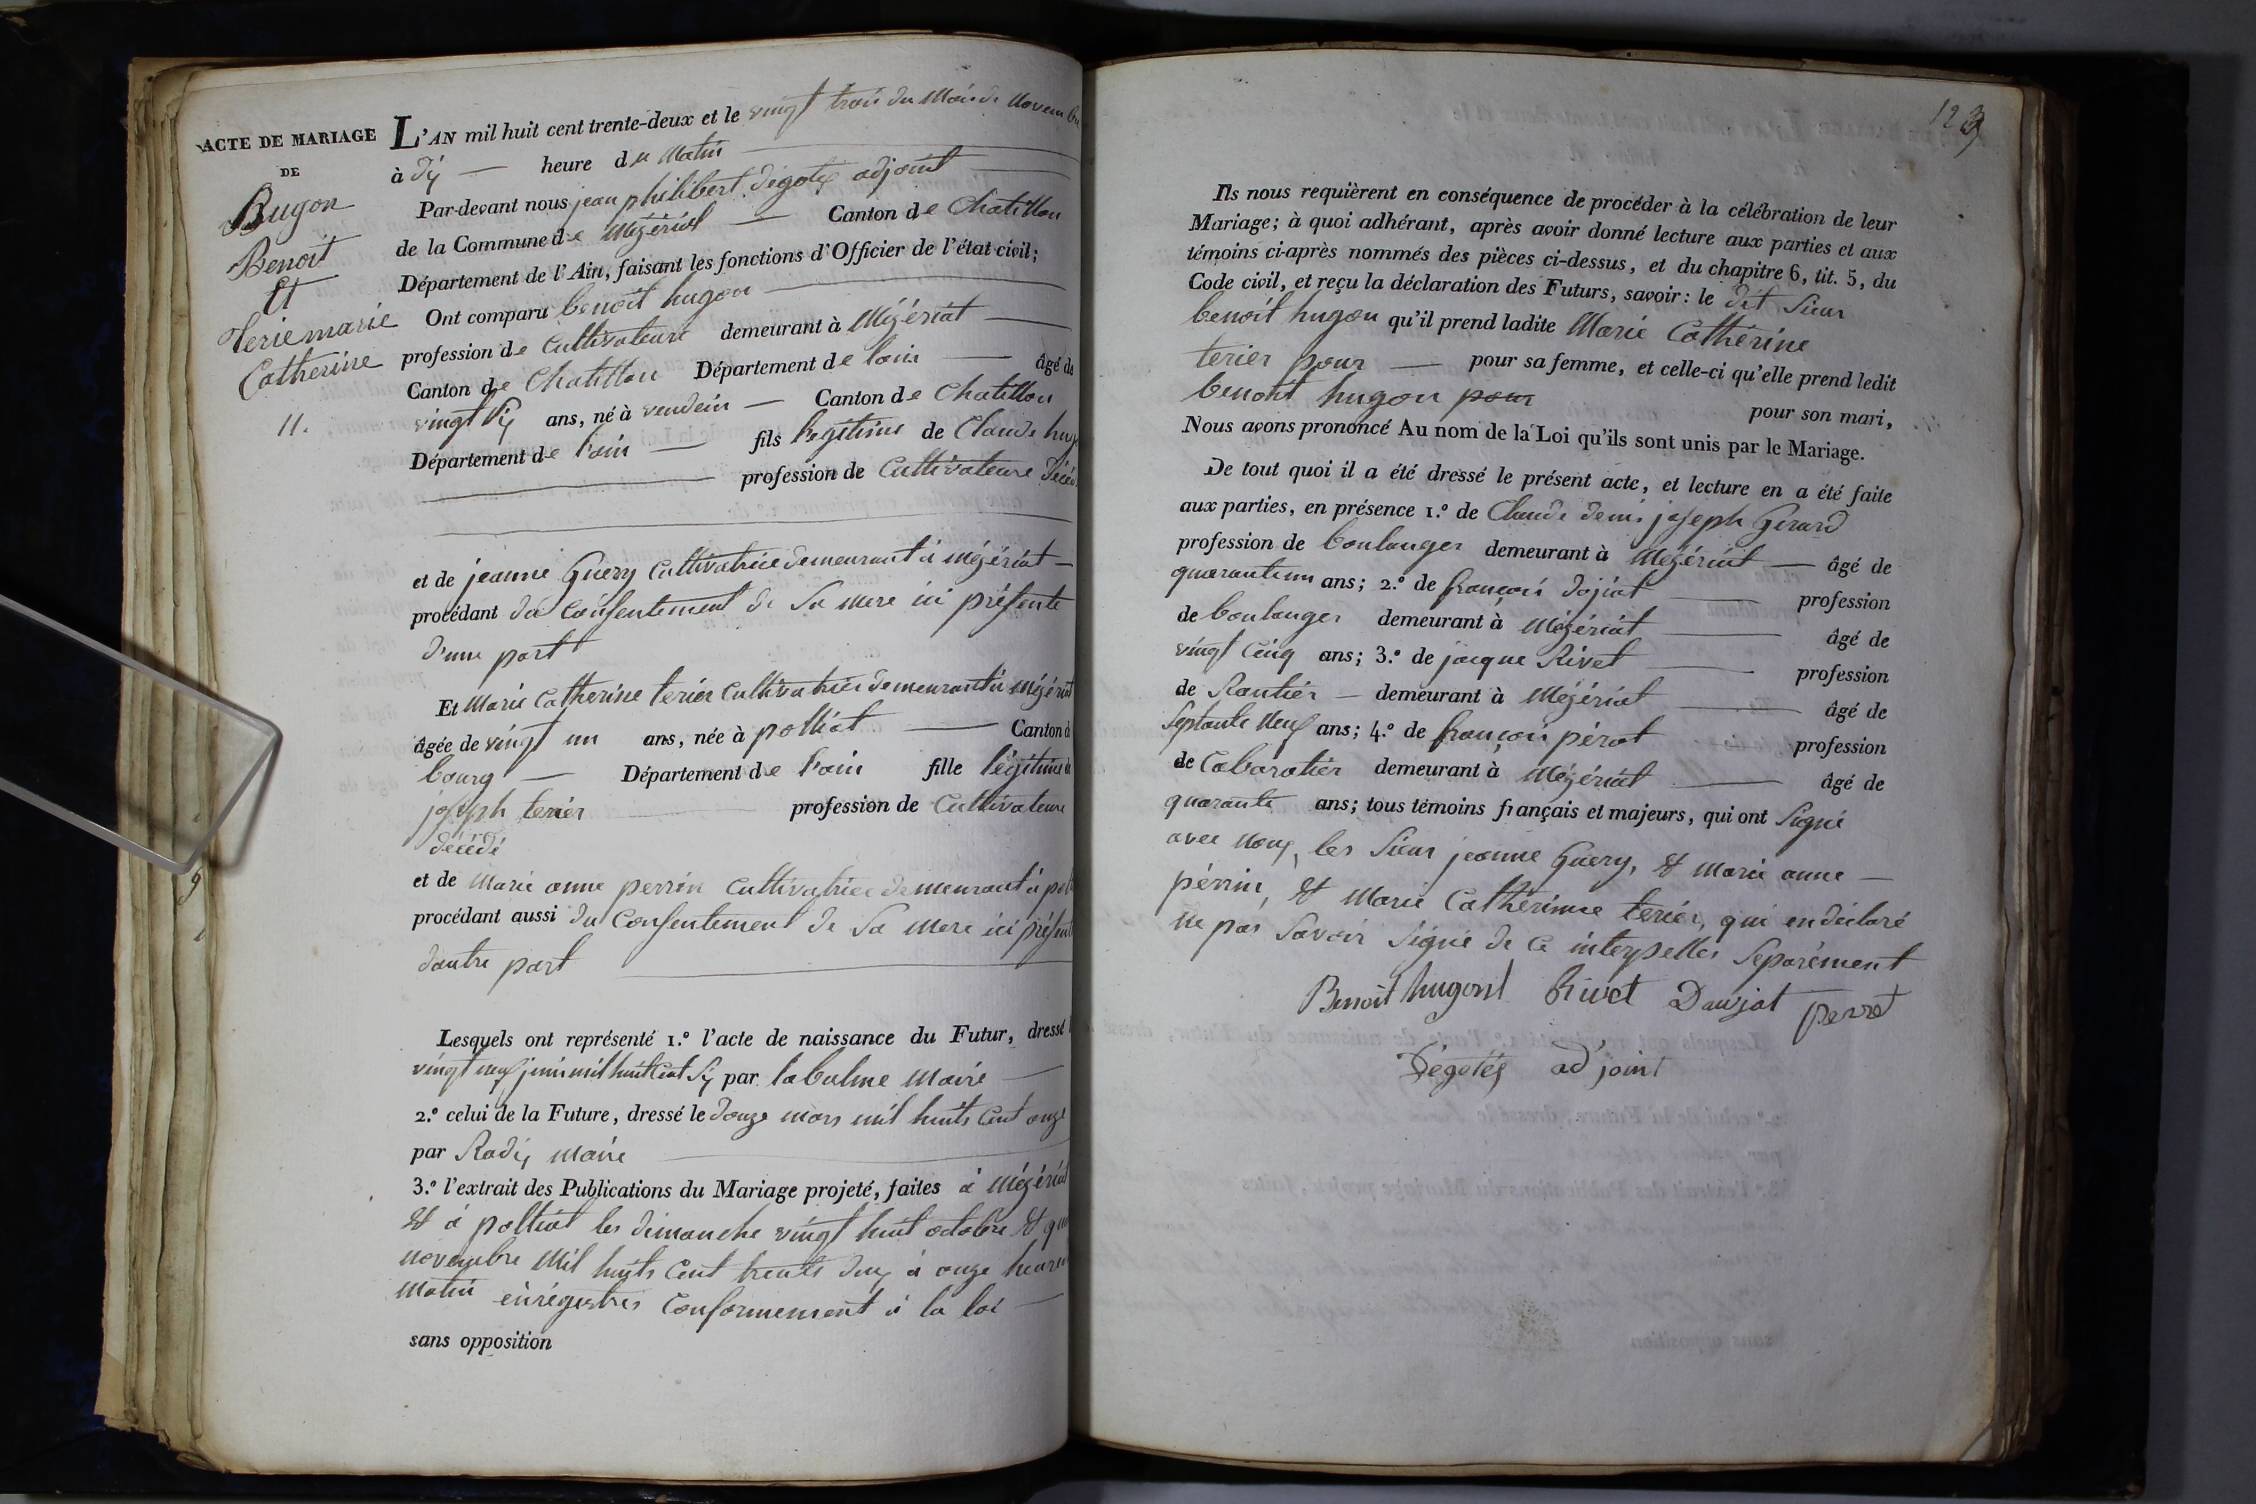 ACTE DE MARIAGE
DE
Hugon
Benoit
Et
Terie marie
Catherine
11.
L'AN mil huit cent trente-deux et le vingt trois du Mois de Novembre
à dix — heure du Matin
Par-devant nous jean philibert degotex adjoint
de la Commune de Mézériat — Canton de Chatillon
Département de l'Ain, faisant les fonctions d'Officier de l'état civil;
Ont comparu benoit hugon
profession de Cultivateure demeurant à Mézériat
Canton de Chatillon Département de lain — âgé de
vingt six ans, né à vendein — Canton de Chatillon
Département de l'ain — fils legitime de Claude hugo
profession de Cultivateure décéd
et de jeanne Guery Cultivatrice demeurant à mézériat —
procédant du Consentement de Sa mere ici présente
d'une part
Et Marie Catherine terier Cultivatrice demeurant à mézériat
âgée de vingt un ans, née à polliat — Canton d
bourg — Département de l'ain fille légitime de
joseph terier profession de Cultivateure
décédé
et de Marie anne perrin Cultivatrice demeurant à poll
procédant aussi du Consentement de Sa Mere ici présent
dautre part
Lesquels ont représenté 1.º l'acte de naissance du Futur, dressé l
vingt neuf juin mil huit Cent Six par labalme Maire —
2.º celui de la Future, dressé le douze mars mil huits Cent onze
par Radix maire
3.º l'extrait des Publications du Mariage projeté, faites à Mézériat
& à polliat les dimanche vingt huit octobre & qu
novembre Mil huits Cent trente deux à onze heures
Matin enrégistrés Conformement à la loi —
sans opposition
123
Ils nous requièrent en conséquence de procéder à la célébration de leur
Mariage; à quoi adhérant, après avoir donné lecture aux parties et aux
témoins ci-après nommés des pièces ci-dessus, et du chapitre 6, tit. 5, du
Code civil, et reçu la déclaration des Futurs, savoir: le dit Sieur
benoit hugon qu'il prend ladite Marie Catherine
terier pour — pour sa femme, et celle-ci qu'elle prend ledit
benoit hugon pour pour son mari,
Nous avons prononcé Au nom de la Loi qu'ils sont unis par le Mariage.
De tout quoi il a été dressé le présent acte, et lecture en a été faite
aux parties, en présence 1.º de Claude denis joseph Girard
profession de boulanger demeurant à Mézériat — âgé de
quarante un ans; 2.º de françois dojat — profession
de boulanger demeurant à Mézériat — âgé de
vingt Cinq ans; 3.º de jacque Rivet — profession
de Rantier — demeurant à Mézériat — âgé de
Septante Neuf ans; 4.º de françois pérat profession
de Cabaratier demeurant à Mézériat — âgé de
quarante ans; tous témoins français et majeurs, qui ont Signé
avec nous, les Sieur jeanne Guery, & marie anne —
périn, & Marie Catherinne terier, qui en déclaré
ne pas Savoir Signé de Ce interpelles Separément
Benoit hugont Rivet Daujat perret
Dégotex adjoint